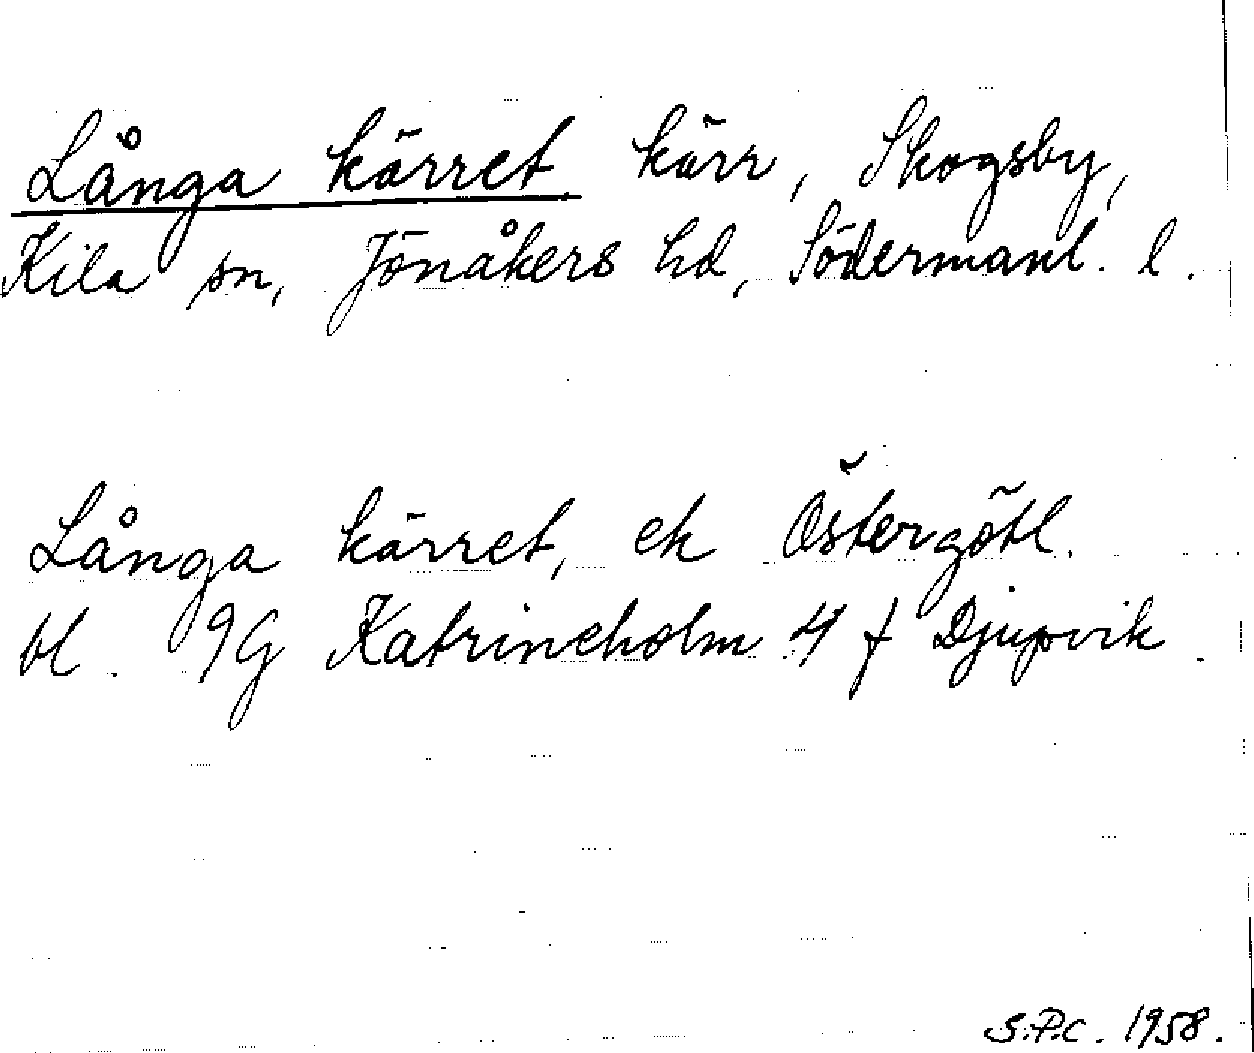 Långa kärret, kärr, Skogsby,
Kila sn, Jönåkers hd, Södermanl. l.
Långa kärret, ek Östergötl.
bl. 9G Katrineholm 4 f Djupvik
S.P.C. 1958.